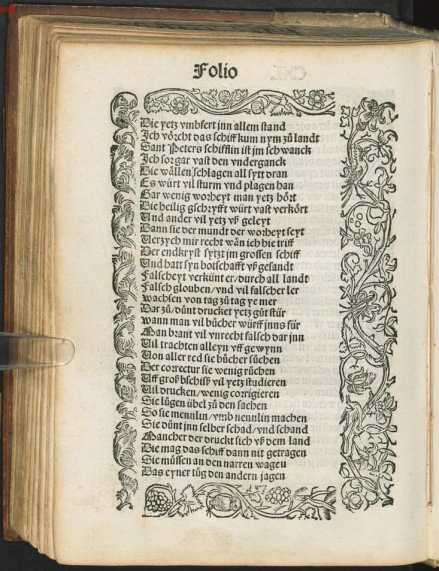 Folio
Die yetz vmbfert jnn allem stand
Jch vörcht das schiff kum nym zů landt
Sant Peters schifflin ist jm schwanck
Jch sorg gar vast den vnderganck
Die wällen schlagen all syt dran
Es würt vil sturm vnd plagen han
Gar wenig worheyt man yetz hört
Die heilig gschryfft würt vast verkört
Und ander vil yetz vß geleyt
Dann sie der mundt der worheyt seyt
Verzych mir recht wän ich hie triff
Der endkryst sytzt jm grossen schiff
Und hatt syn botschafft vß gesandt
Falscheyt verkünt er / durch all landt
Falsch glouben / vnd vil falscher ler
wachsen von tag zů tag ye mer
Dar zů / důnt drucker yetz gůt stür
wann man vil bůcher würff jnns für
Man brant vil vnrecht falsch dar jnn
Vil trachten alleyn vff gewynn
Von aller red sie bůcher sůchen
Der correctur sie wenig růchen
Uff groß bschiss vil yetz studieren
Vil drucken / wenig corrigieren
Sie lůgen übel zů den sachen
So sie mennlin / vmb nennlin machen
Sie důnt jnn selber schad / vnd schand
Mancher der druckt sich vß dem land
Die mag das schiff dann nit getragen
Sie müssen an den narren wagen
Das eyner tüg den andern jagen